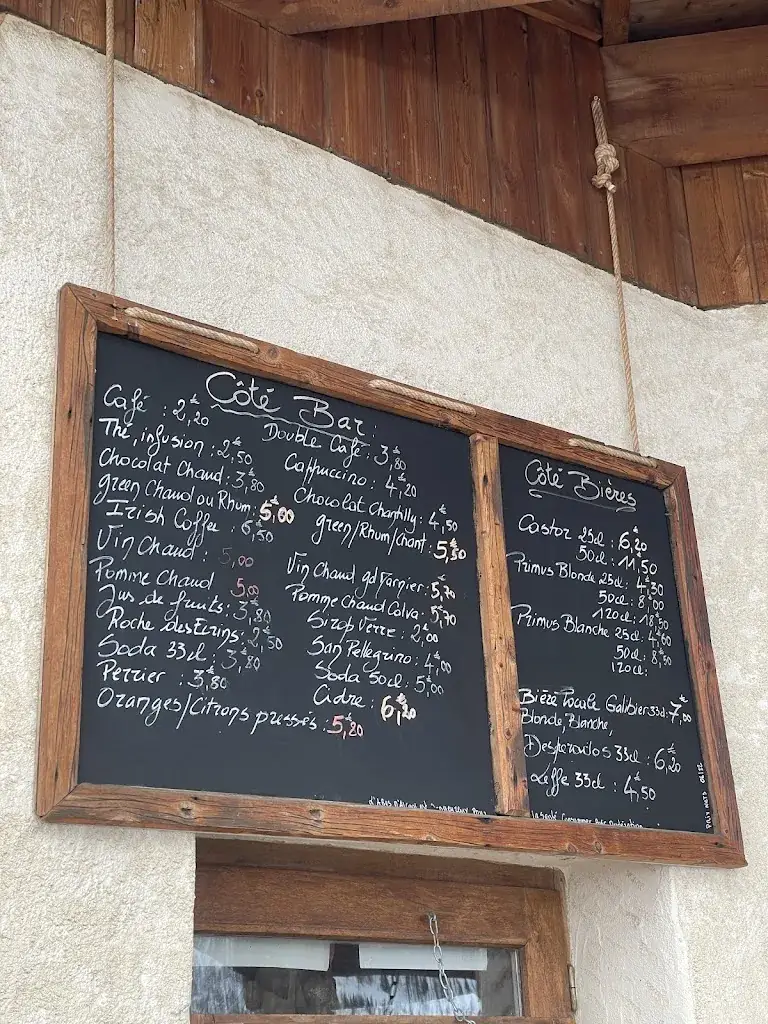 Côté Bar
Café : 2,20€
Thé, infusion : 2,50€
Chocolat Chaud : 3,80€
green Chaud ou Rhum : 5,00€
Irish Coffee : 6,50€
Vin Chaud : 5,00
Pomme Chaud 5,00
Jus de fruits : 3,80€
Roche des Ecrins : 2,50€
Soda 33cl : 3,80€
Perrier : 3,80€
Oranges/Citrons pressés : 5,20€
Double Café : 3,80€
Cappuccino : 4,20€
Chocolat Chantilly : 4,50€
green/Rhum/chant : 5,50€
Vin Chaud gd Marnier : 5,70€
Pomme chaud Calva : 5,70€
Sirop Verre : 2,00€
San Pellegrino : 4,00€
Soda 50cl : 5,00€
Cidre : 6,20€
Côté Bières
Castor 25cl : 6,20€
50cl : 11,50€
Primus Blonde 25cl : 4,30€
50cl : 8,00€
120cl : 18,50€
Primus Blanche 25cl : 4,60€
50cl : 8,50€
120cl :
Bière Locale Galibier 33cl : 7,00€
Blonde, Blanche,
Desperados 33cl : 6,20€
Leffe 33cl : 4,50€
la Santé Consommer avec modération
Prix nets